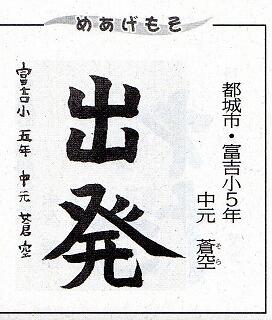 めあげもそ
都城市・富吉小5年
中元 蒼空
そら
出発
富吉小 五年 中元 蒼空